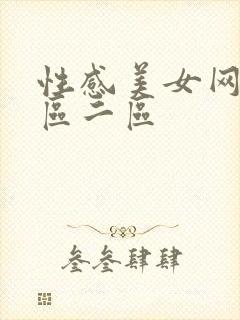 性感美女网
區二區
叁叁肆肆